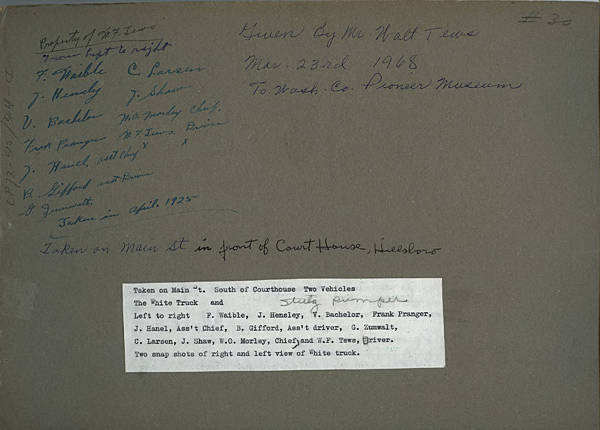 Property of W.F. Tews
From Left to right
F. Waible C. Larsen
J. Hensley J. Shaw
V. Bachelor W.O. Morley Chief.
Frank Pranger W.F. Tews Driver
J. Hanel, asst Chief x x
B. Gifford asst Driver
G Zumwalt.
Taken in April. 1925
Given By Mr Walt Tews
Mar. 23rd 1968
To Wash. Co. Pioneer Museum
# 30
Taken on Main St in front of Court House, Hillsboro
Taken on Main "t. South of Courthouse Two Vehicles
The White Truck and Stutz pumper
Left to right F. Waible, J. Hemsley, V. Bachelor, Frank Pranger,
J. Hanel, Ass't Chief, B. Gifford, Ass't driver, G. Zumwalt,
C. Larsen, J. Shaw, W.O. Morley, Chief, and W.F. Tews, Driver.
Two snap shots of right and left view of White truck.